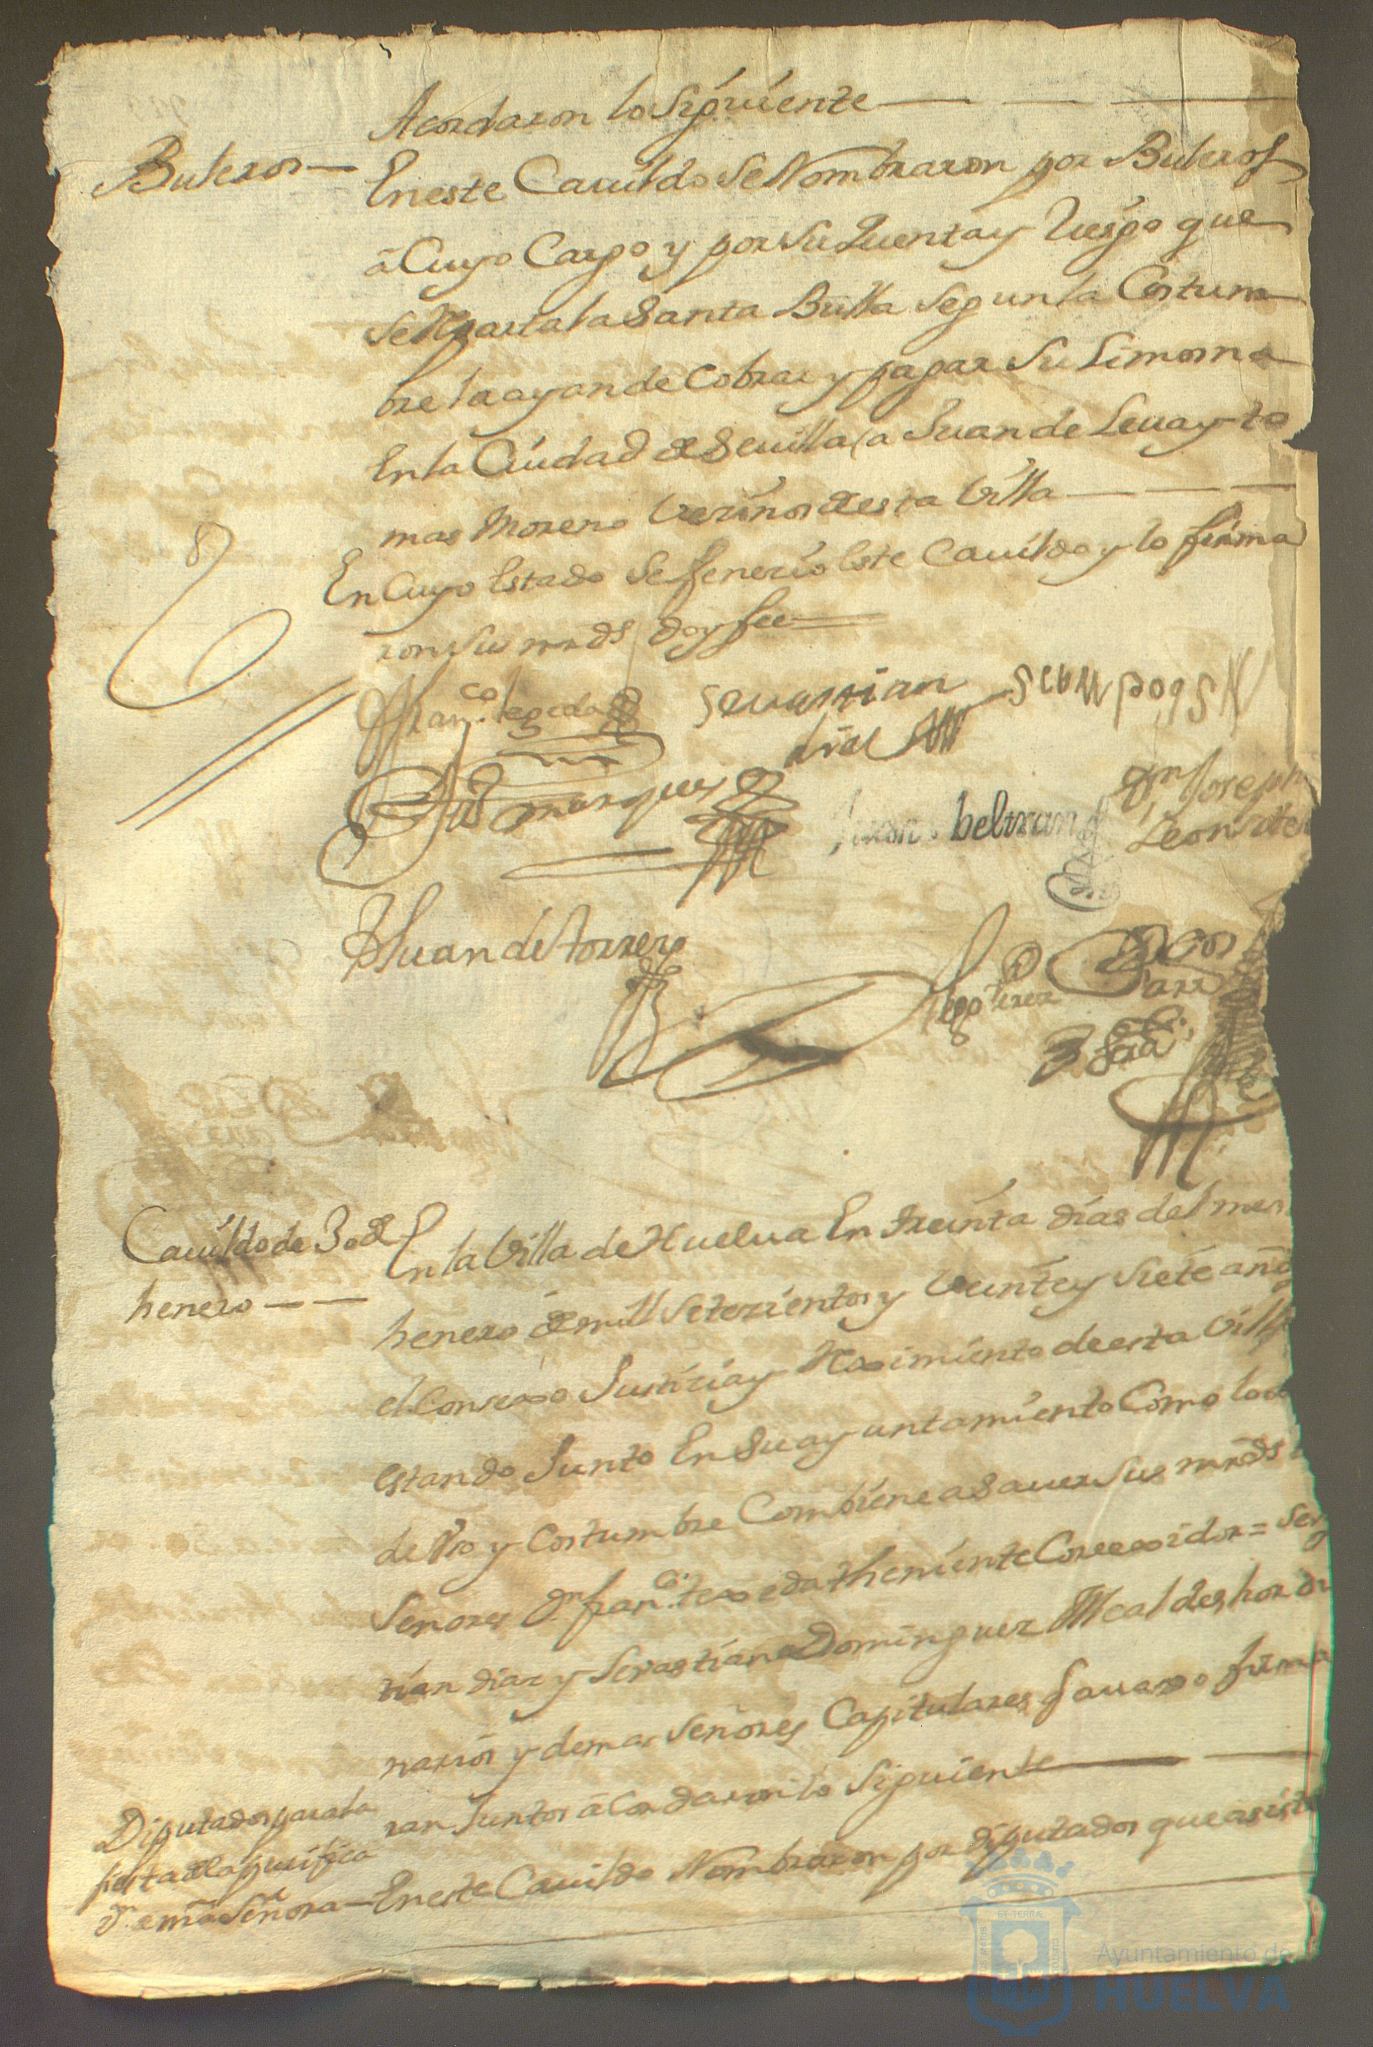 Acordaron lo Siguiente
Buleros
En este Cauildo Se Nombraron por Buleros
â Cuyo Cargo y por Su Quenta y Riesgo que
Se Reparta la Santa Bulla Segun la Costum
bre la ayan de Cobrar y pagar Su Limosna
En la Ciudad de Seuilla a Juan de Leua y to
mas Moreno Vezinos de esta Villa
En Cuyo Estado Se fenezio Este Cauildo y lo firma
ron Sus mrds doy fee
Franco. texeda
Seuastian
dias
marques
Juan beltran
Dn Joseph
Leonarte
Juan de torres
Diego Perez
Cauildo de 30 de
henero
En la Villa de Huelua En treinta dias del mes
henero de mill Setezientos y Veinte y Siete años
el Consexo Justizia y Reximiento de esta Villa
estando Junto En Su ayuntamiento Como lo
de Vso y Costumbre Combiene a Sauer Sus mrds
Señores Dn franco. texeda theniente Correxidor = Seu
tian diaz y Sevastian Dominguez Alcaldes hordi
narios y demas Señores Capitulares q auaxo firma
ran Juntos âcordaron lo Siguiente
Diputados para la
fiesta de la purifica
on. de nra Señora
En este Cauildo Nombraron por diputados que asista
Ayuntamiento de
HUELVA